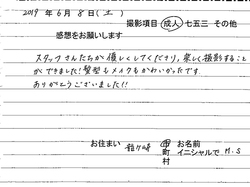 2019年 6月 8日(土)
撮影項目 成人 七五三 その他
感想をお願いします
スタッフさんたちが優しくしてくださり、楽しく撮影すること
ができました!髪型もメイクもかわいかったです。
ありがとうございました!!
お住まい 龍ケ崎 市町村 お名前 イニシャルで M.S